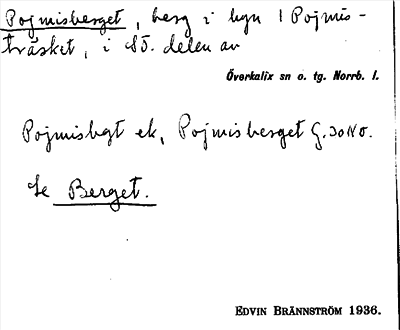 Pojmisberget, berg i byn 1 Pojmis-
träsket, i SÖ. delen av
Överkalix sn o. tg. Norrb. l.
Pojmisbgt ek, Pojmisberget G.30NO.
Se Berget.
EDVIN BRÄNNSTRÖM 1936.